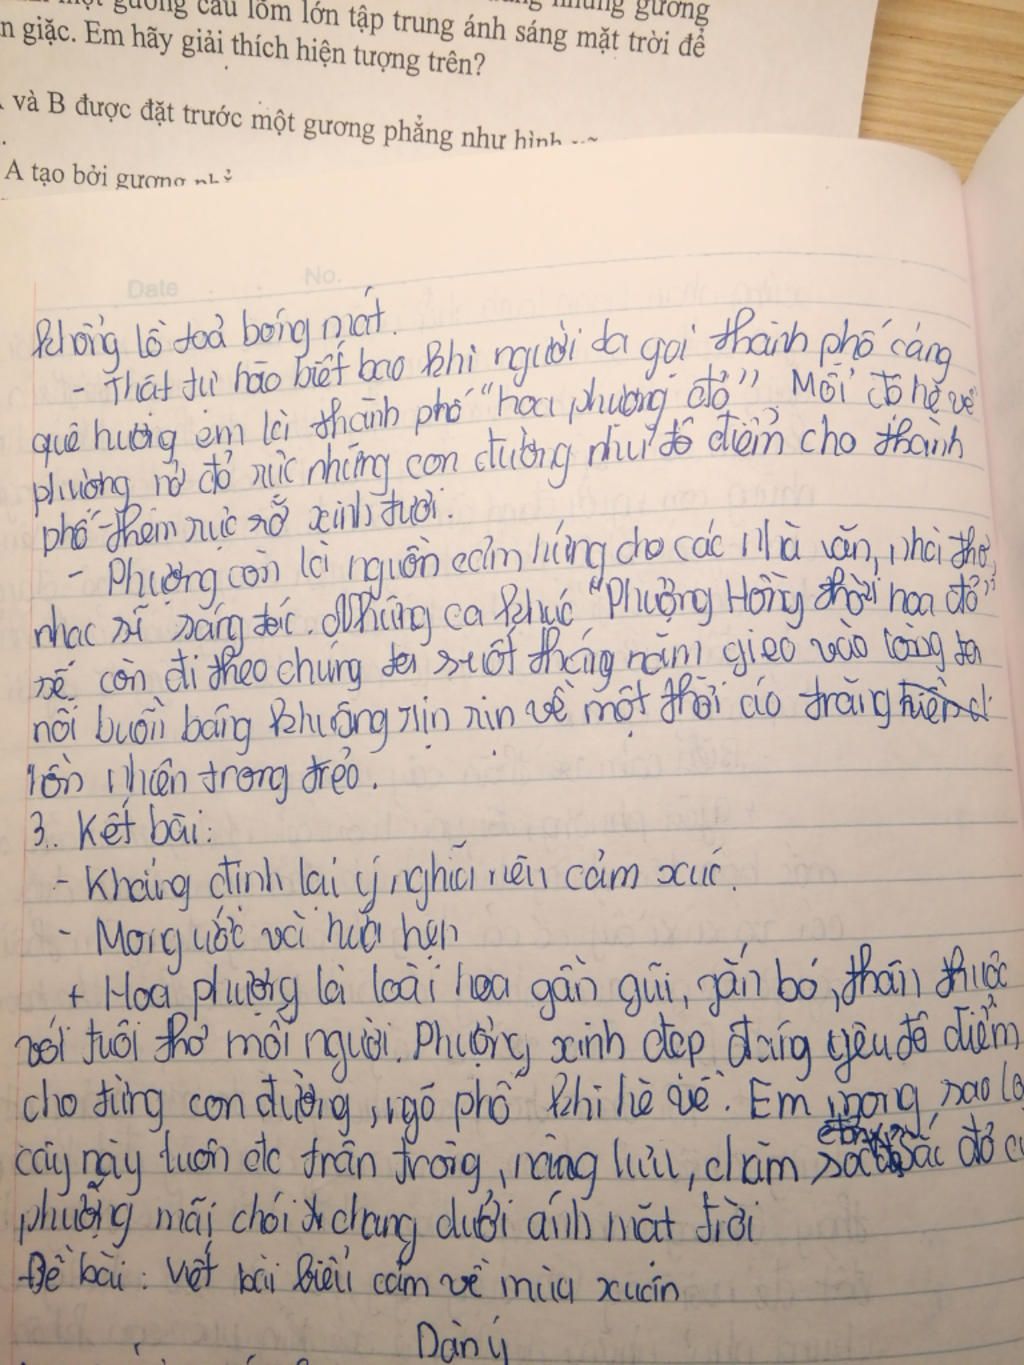 gương cầu lõm lớn tập trung ánh sáng mặt trời để
n giặc. Em hãy giải thích hiện tượng trên?
và B được đặt trước một gương phẳng như hình
A tạo bởi gương
Date No.
khổng lồ toả bóng mát.
- Thật tự hào biết bao khi người ta gọi thành phố cảng
quê hương em là thành phố "hoa phượng đỏ" Mỗi độ hè về
phượng nở đỏ rực những con đường như tô điểm cho thành
phố thêm rực rỡ xinh tươi.
- Phượng còn là nguồn cảm hứng cho các nhà văn, nhà thơ,
nhạc sĩ sáng tác. Những ca khúc "Phượng Hồng thời hoa đỏ"
sẽ còn đi theo chúng ta suốt tháng năm gieo vào lòng ta
nỗi buồn bâng khuâng về một thời áo trắng
hồn nhiên trong trẻo.
3. Kết bài:
- Khẳng định lại ý nghĩa nêu cảm xúc.
- Mong ước và hứa hẹn
+ Hoa phượng là loài hoa gần gũi, gắn bó, thân thuộc
với tuổi thơ mỗi người. Phượng xinh đẹp đáng yêu tô điểm
cho từng con đường, ngõ phố khi hè về. Em mong sao
cây này luôn đc trân trọng, nâng lưu, chăm sắc đỏ
phượng mãi chói chang dưới ánh mặt trời
Đề bài: Viết bài biểu cảm về mùa xuân
Dàn ý